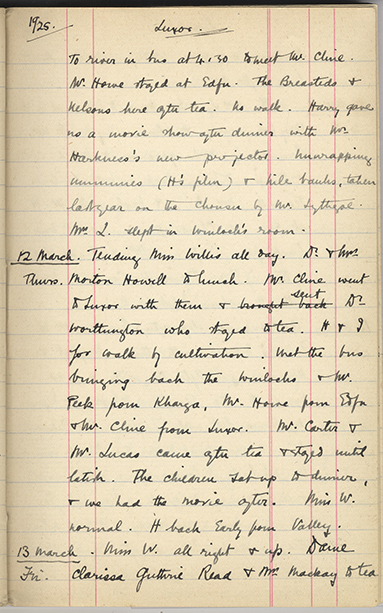 1925. Luxor.
To river in bus at 4.30 to meet Mr. Cline.
Mr. Howe stayed at Edfu. The Breasteds &
Nelsons here after tea. No walk. Harry gave
us a movie show after dinner with Mr.
Harkness's new projector. Unwrapping
mummies (H's film) & Nile banks, taken
last year on the Chonsu by Mr. Lythgoe.
Mrs L. slept in Winlock's room.
12 March. Tending Miss Willis all day. Dr. & Mrs
Thurs. Morton Howell to lunch. Mr. Cline went
to Luxor with them & brought back sent Dr.
Worthington who stayed to tea. H & I
for walk by cultivation. Met the bus
bringing back the Winlocks & Mr.
Peek from Kharga, Mr. Howe from Edfu
& Mr. Cline from Luxor. Mr. Carter &
Mr. Lucas came after tea & stayed until
latish. The children sat up to dinner,
& we had the movie after. Miss W.
normal. H back Early from Valley.
13 March. Miss W. all right & up. Dame
Fri. Clarissa Guthrie Read & Mrs Mackay to tea